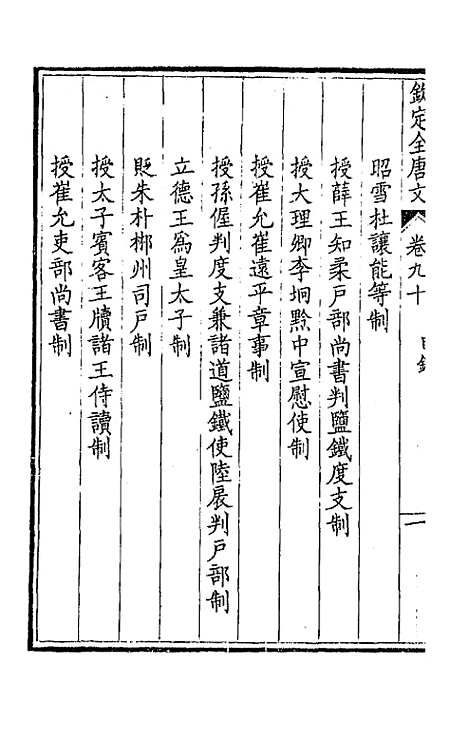 欽定全唐文 卷九十 目錄 一
昭雪杜讓能等制
授薛王知柔戶部尚書判鹽鐵度支制
授大理卿李坰黔中宣慰使制
授崔允崔遠平章事制
授孫偓判度支兼諸道鹽鐵使陸扆判戶部制
立德王爲皇太子制
貶朱朴郴州司戶制
授太子賓客王牘諸王侍讀制
授崔允吏部尚書制